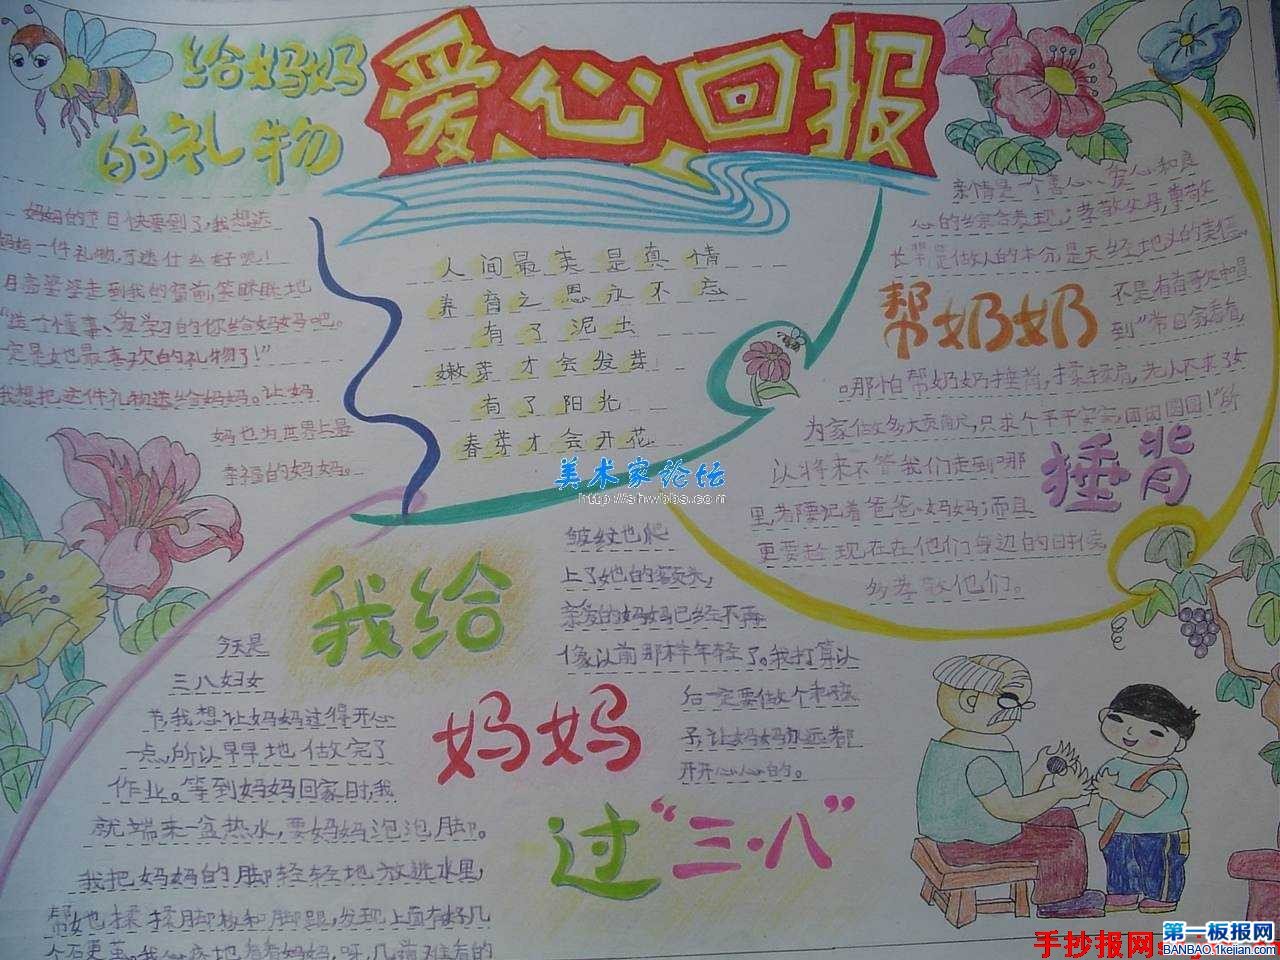 爱心回报
给妈妈
的礼物
妈妈的节日快要到了,我想送
妈妈一件礼物,可送什么好呢!
月亮婆婆走到我的窗前,笑眯眯地
“送个懂事、爱学习的你给妈妈吧。
定是她最喜欢的礼物了!”
我想把这件礼物送给妈妈。让妈
妈也为世界上最
幸福的妈妈。
人间最美是真情
养育之恩永不忘
有了泥土
嫩芽才会发芽
有了阳光
春芽才会开花
美术家论坛
http://shwbbs.com
亲情是一个善心、爱心和良
心的综合表现;孝敬父母,尊敬
长辈,是做人的本分,是天经地义的美德。
帮奶奶
不是有首歌
到“常回家看看
哪怕帮奶奶捶背,揉揉肩,老人不求子女
为家做多大贡献,只求个平平安安,团团圆圆!”所
捶背
以将来不管我们走到哪
里,都要记着爸爸、妈妈;而且
更要趁现在在他们身边的时候,
多孝敬他们。
我给
妈妈
过“三·八”
今天是
三八妇女
节,我想让妈妈过得开心
一点,所以早早地做完了
作业。等到妈妈回家时,我
就端来一盆热水,要妈妈泡泡脚。
我把妈妈的脚轻轻地放进水里,
帮她揉揉脚板和脚跟,发现上面有好几
个老茧。我心疼地看着妈妈,呀,几道难看的
皱纹也爬
上了她的额头,
亲爱的妈妈已经不再
像以前那样年轻了。我打算以
后一定要做个乖孩
子,让妈妈永远都
开开心心的。
手抄报网
第一板报网
BANBAO.1kejian.com